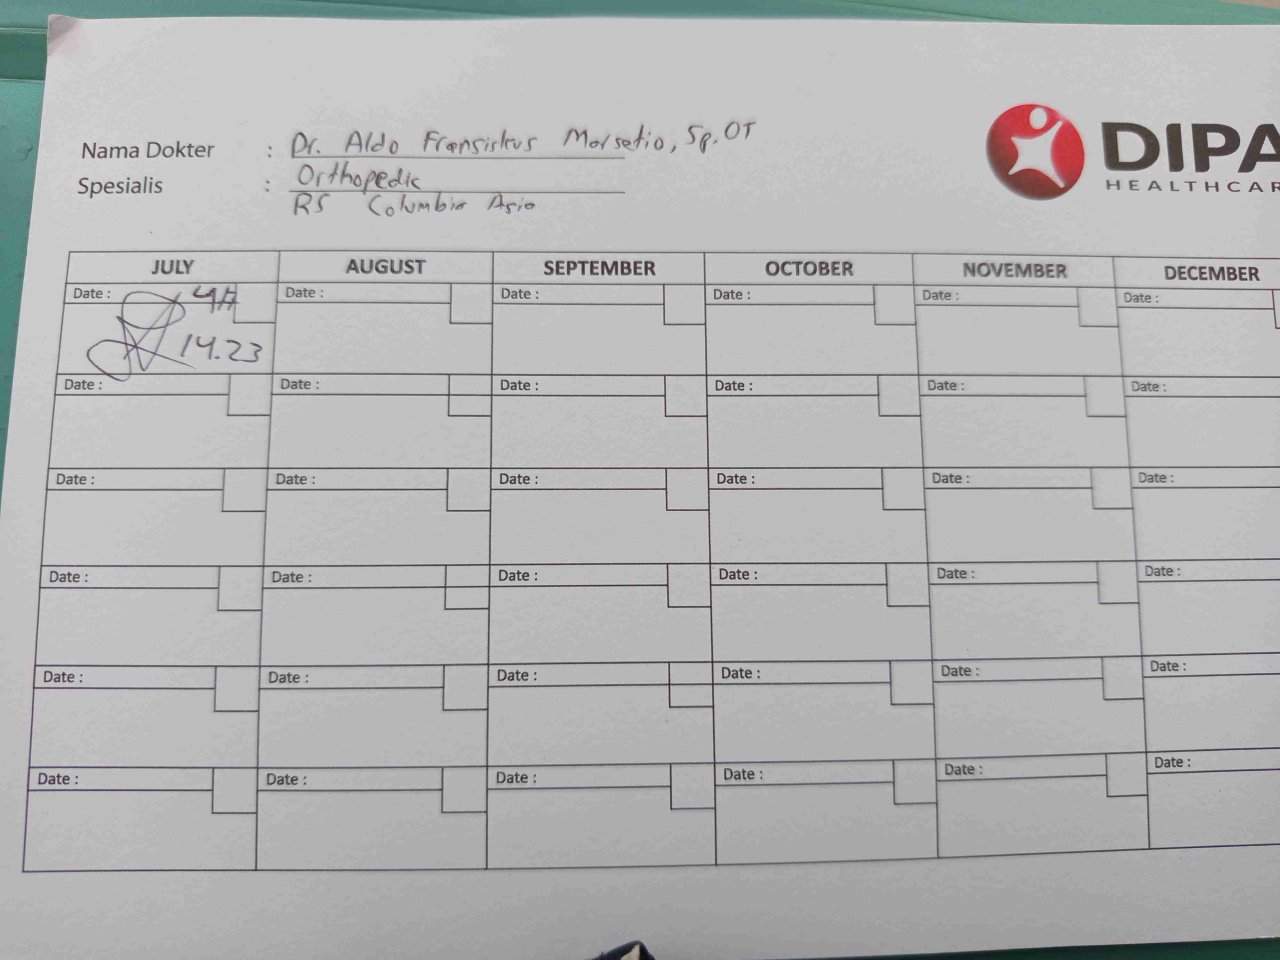 Nama Dokter : Dr. Aldo Fransiskus Marsetio, Sp.OT
Spesialis : Orthopedic
RS Columbia Asia
DIPA
HEALTHCAR
JULY AUGUST SEPTEMBER OCTOBER NOVEMBER DECEMBER
Date : Date : Date : Date : Date : Date :
14.23
Date : Date : Date : Date : Date : Date :
Date : Date : Date : Date : Date : Date :
Date : Date : Date : Date : Date : Date :
Date : Date : Date : Date : Date : Date :
Date : Date : Date : Date : Date : Date :